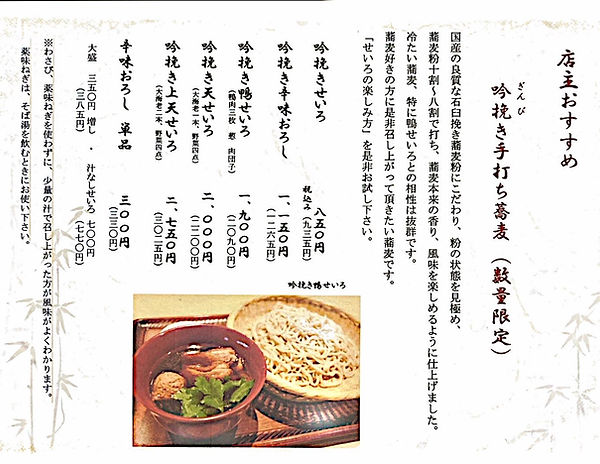 店主おすすめ
吟挽き手打ち蕎麦（数量限定）
ぎんびき
国産の良質な石臼挽き蕎麦粉にこだわり、粉の状態を見極め、
蕎麦粉十割～八割で打ち、蕎麦本来の香り、風味を楽しめるように仕上げました。
冷たい蕎麦、特に鴨せいろとの相性は抜群です。
蕎麦好きの方に是非召し上がって頂きたい蕎麦です。
「せいろの楽しみ方」を是非お試し下さい。
吟挽きせいろ 八五〇円
税込み（九三五円）
吟挽き辛味おろし 一、一五〇円
（一二六五円）
吟挽き鴨せいろ 一、九〇〇円
（鴨肉三枚 葱 肉団子） （二〇九〇円）
吟挽き天せいろ 二、〇〇〇円
（大海老一本 野菜四点） （二二〇〇円）
吟挽き上天せいろ 二、七五〇円
（大海老二本 野菜四点） （三〇二五円）
辛味おろし 単品 三〇〇円
（三三〇円）
大盛 三五〇円増し ・ 汁なしせいろ 七〇〇円
（三八五円） （七七〇円）
※わさび、薬味ねぎを使わずに、少量の汁で召し上がった方が風味がよくわかります。
薬味ねぎは、そば湯を飲むときにお使い下さい。
吟挽き鴨せいろ